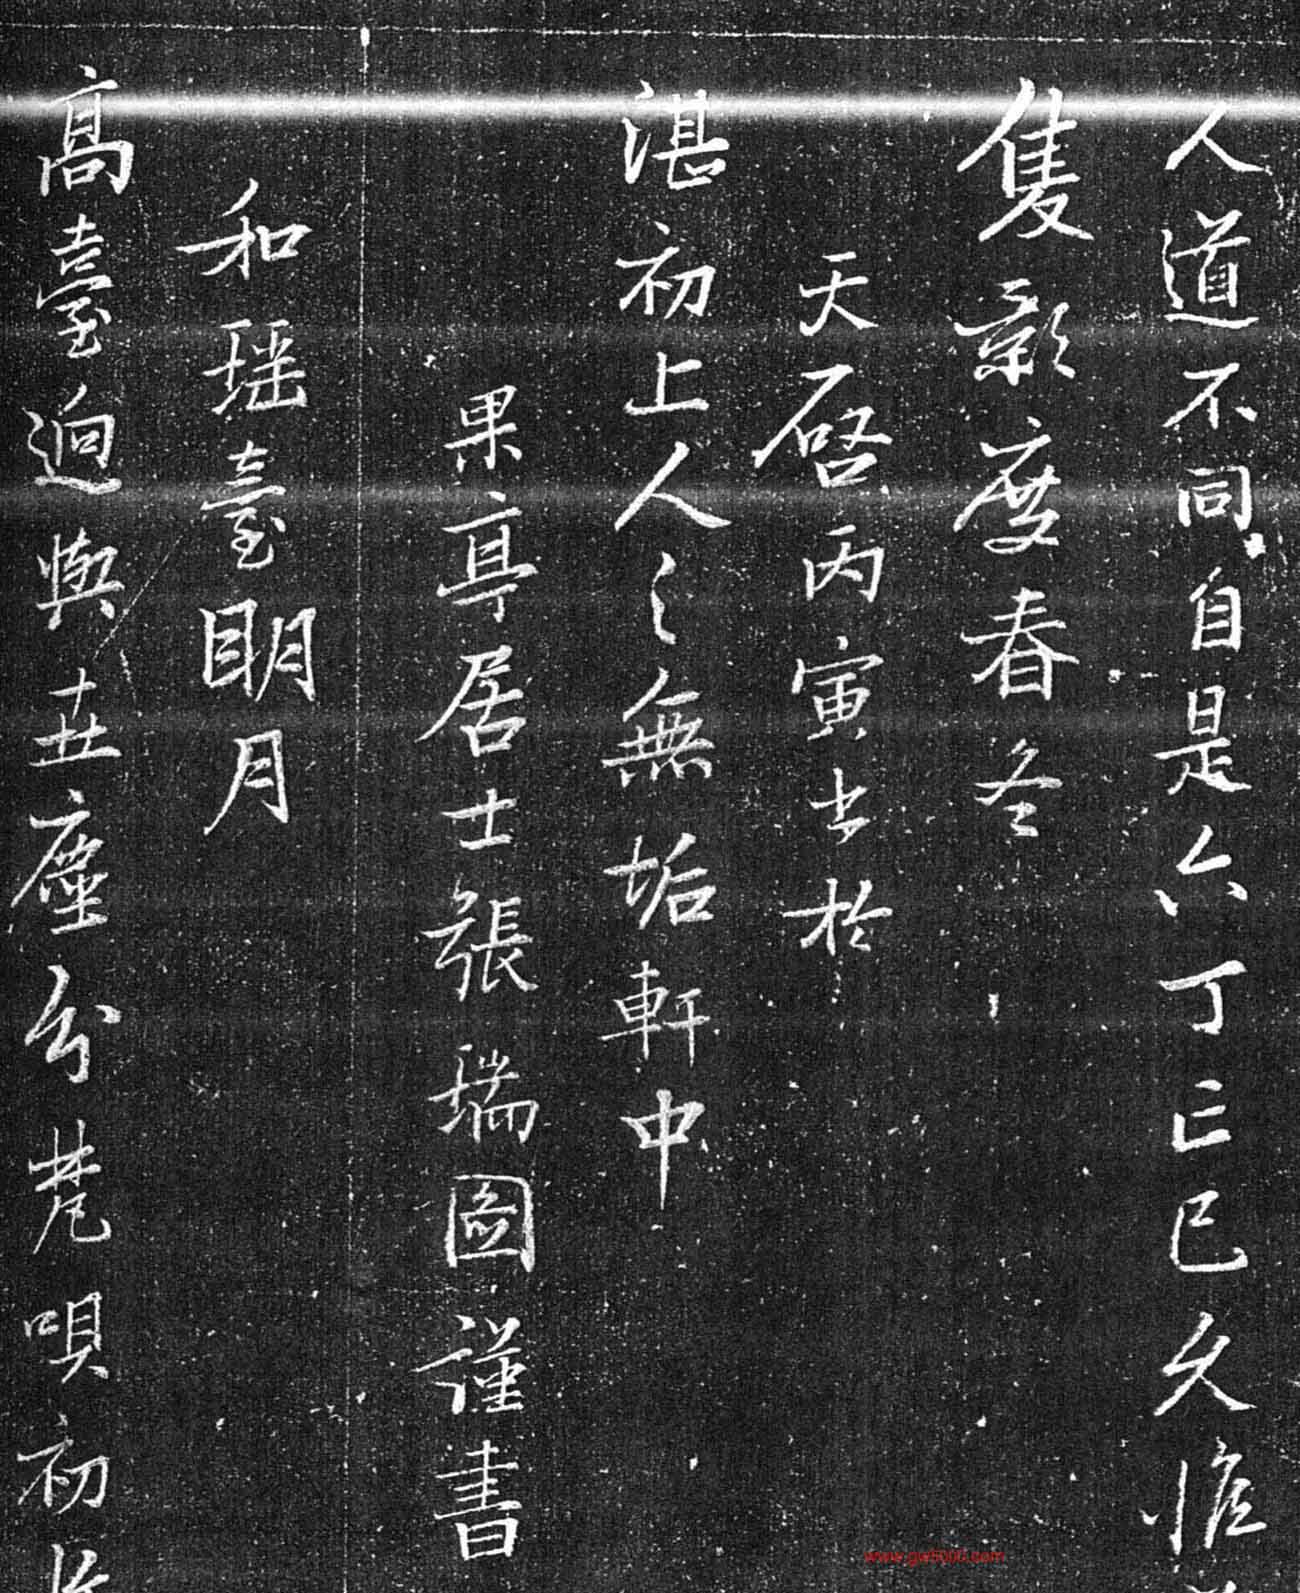 人道不同自是六丁亡已久惟
隻影度春冬
天啓丙寅書於
湛初上人之無垢軒中
果亭居士張瑞圖謹書
和瑶臺明月
髙臺逈與世塵分梵唄初
www.gw5000.com